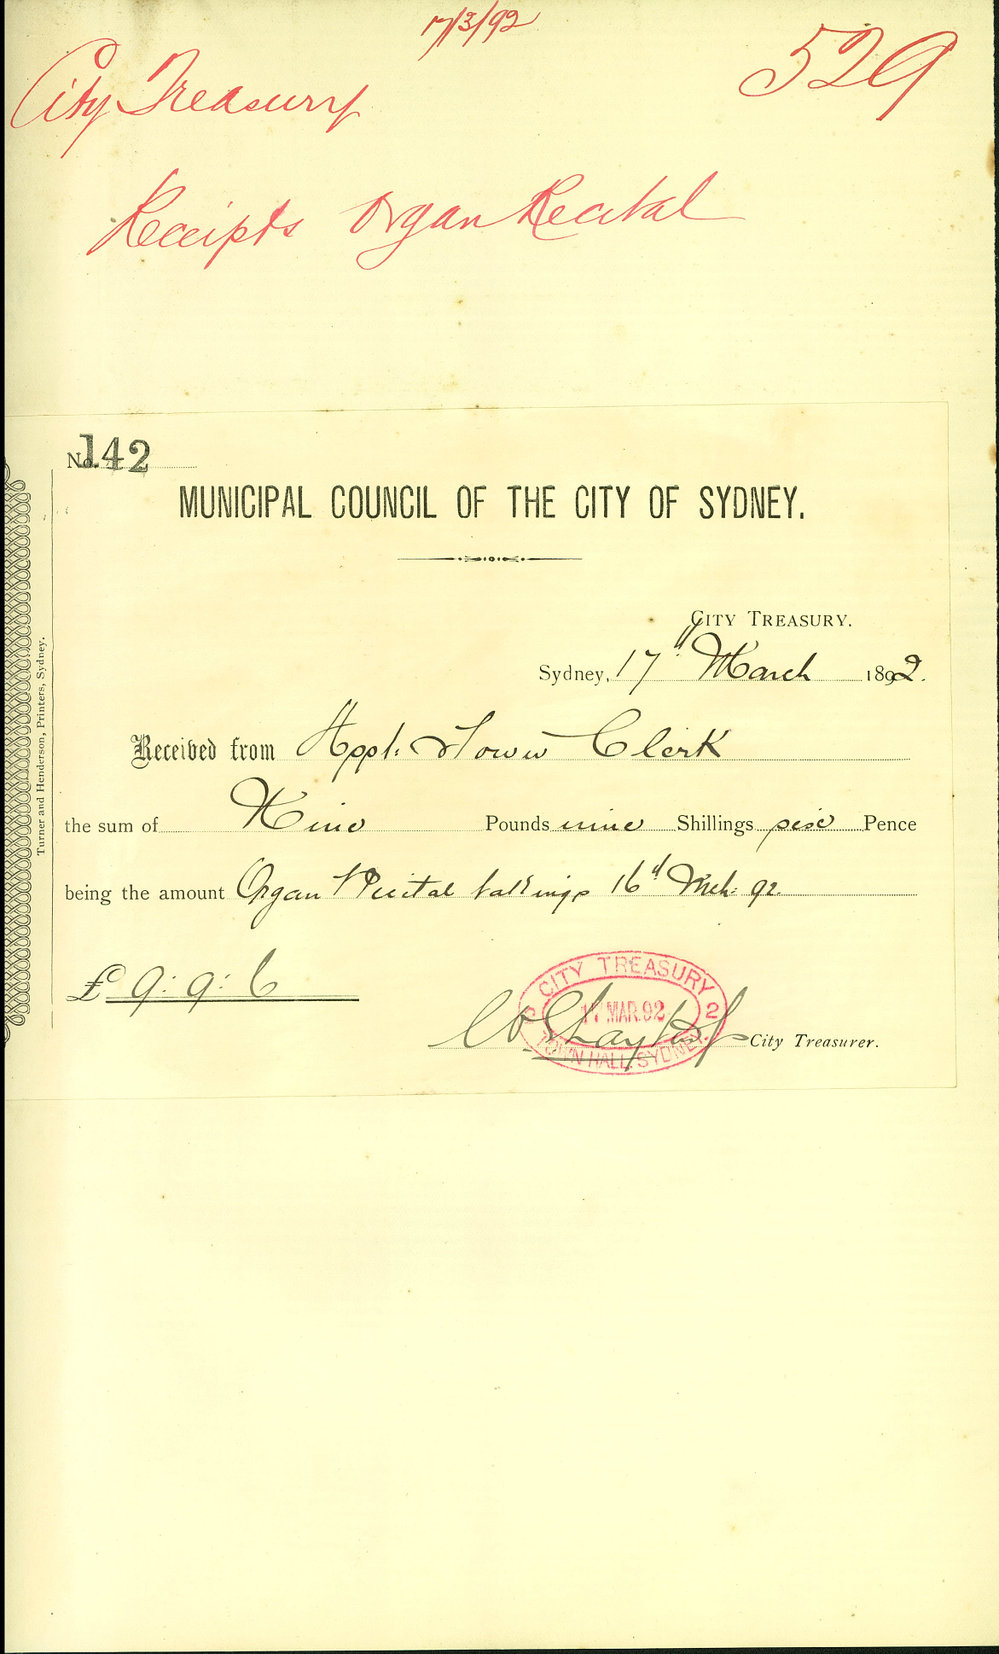 17/3/92
City Treasury
529
Receipts Organ Recital
No. 142
MUNICIPAL COUNCIL OF THE CITY OF SYDNEY.
CITY TREASURY.
Sydney, 17th March 1892.
Received from Town Clerk
the sum of Nine Pounds nine Shillings six Pence
being the amount Organ Recital takings 16th Mch: 92
£ 9: 9: 6
CITY TREASURY
17 MAR. 92
2
TOWN HALL, SYDNEY
City Treasurer.
Turner and Henderson, Printers, Sydney.